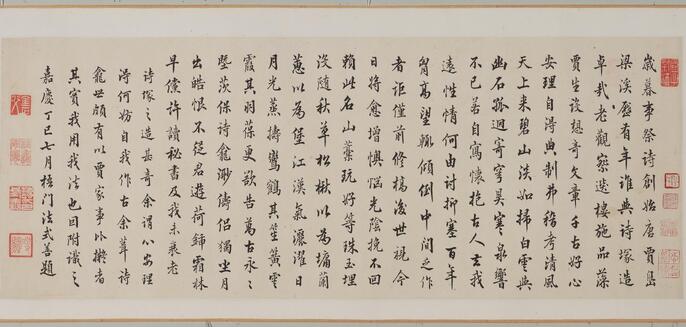 歲暮事祭詩創始唐賈島
梁溪歷有年誰與詩塚造
卓哉老觀察遺樓施品藻
賈生設想奇文章千古好心
安理自得典制弗務考清風
天上来碧山淡如掃白雲與
幽石孤迥寄寥昊寒泉響
不已若自寫懐抱古人去我
遠性情何由討抑塞百年
胷高望輒傾倒中間之作
者詎僅前修槁後世視今
日將愈增懊惱光陰挽不回
賴此名山藁玩好等珠玉埋
沒随秋草松楸以為墉蘭
蕙以為堡江漢氣濯濯日
月光蒸擣鸞鶴其笙簧雲
霞其羽葆更欲告萬古永永
墍茨保詩龕渺儔侣獨坐月
出皓恨不從君遊荷鍤霜林
早儻許讀秘書及我未衰老
詩塚之造甚奇余謂心安理
得何妨自我作古余葺詩
龕世頗有以賈家事比擬者
其實我用我法也因附識之
嘉慶丁巳七月梧門法式善題